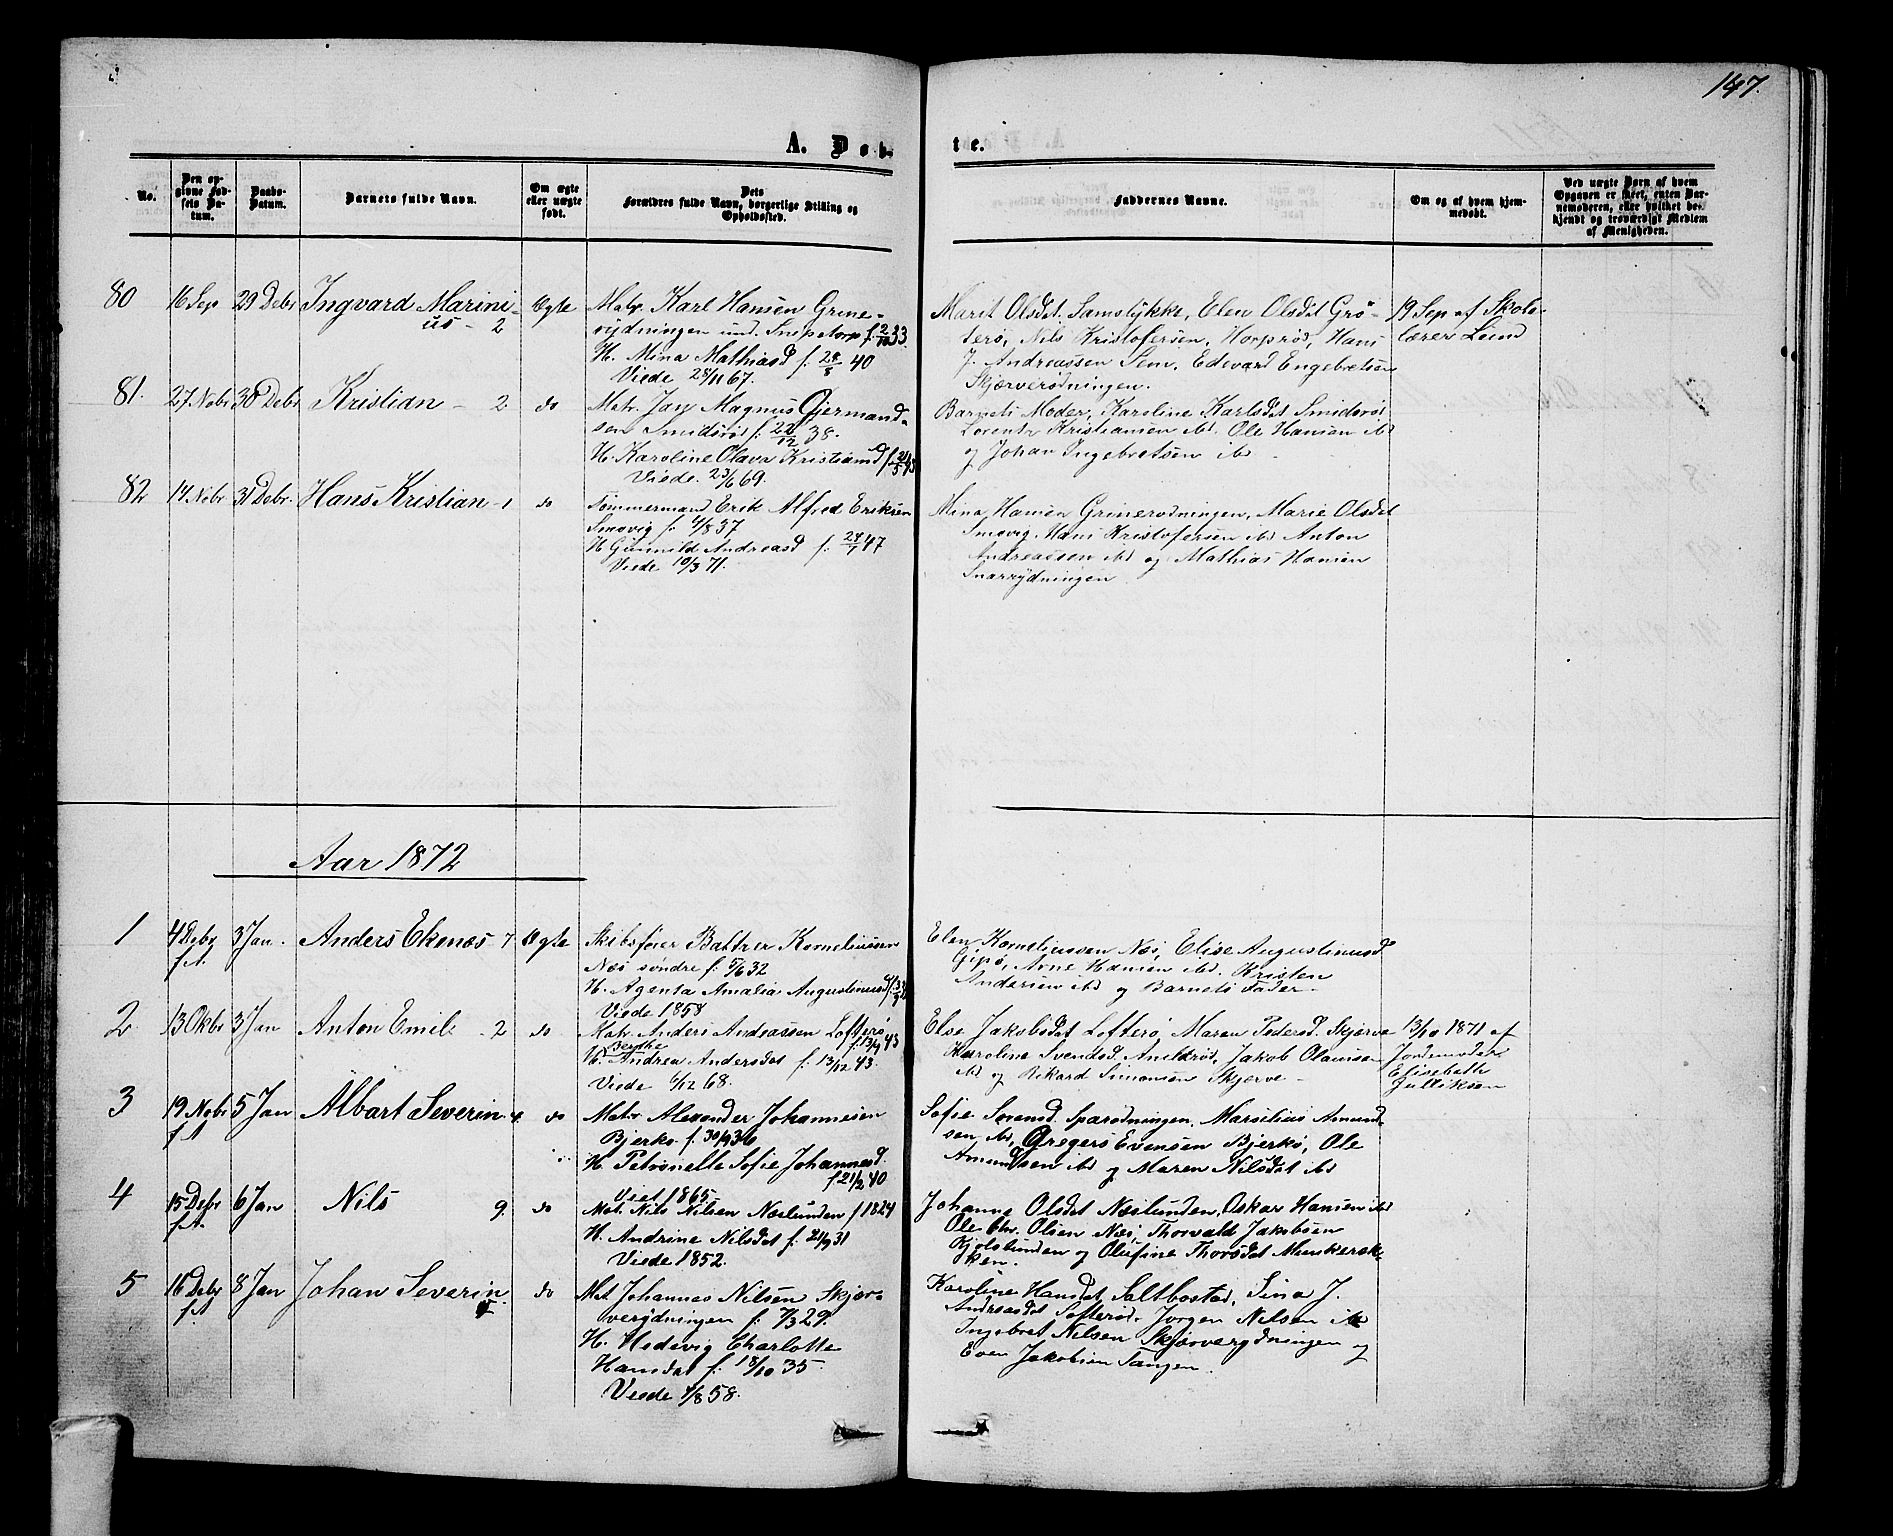 147.
A. Døb-
te.
No.
Den op-
givne Fød-
sels Da-
tum.
Daabs-
Datum.
Barnets fulde Navn.
Om ægte
eller uægte
født.
Dets
Forældres fulde Navn, borgerlige Stilling og
Opholdssted.
Faddernes Navne.
Om og af hvem hjem-
medøbt.
Ved uægte Børn af hvem
Opgaven er skeet, enten Bar-
nemoderen, eller hvilket be-
kjendt og troværdigt Medlem
af Menigheden.
80 16 Sep 29 Debr Ingvard Marini-
us - 2
Ægte
Matr. Karl Hansen Grine-
rydningen und. Sneptorp f. 2/10 33.
H. Mina Mathiasd f. 28/8 40
Viede 28/11 67.
Marit Olsdt. Samstykke, Elen Olsdet Grø-
terø, Nils Kristofersen, Horprød, Hans
J. Andreassen Sem, Edevard Engebretsen
Skjærverødningen.
19 Sep af Skole-
lærer Lund
81. 27 Nobr 30 Debr Kristian - 2 do
Matr. Jan Magnus Gjermand-
sen Smidsrød f. 22/12 38.
H. Karoline Olava Kristiansd f. 21/5 43
Viede. 23/6 69.
Barnets Moder, Karoline Karlsdet Smidsrød
Lorentz Kristiansen ibd. Ole Hansen ibd
og Johan Ingebretsen ibd -
82 14 Nobr. 31 Debr. Hans Kristian - 1 do
Tømmermand Erik Alfred Eriksen
Smovig f. 4/8 37
H. Gunnild Andreasd f. 24/1 47
Viede 10/3 71.
Mina Hansen Grinerødningen, Marie Olsdet
Smovig. Hans Kristofersen ibd Anton
Andreassen ibd og Mathias Hansen
Snarrydningen
Aar 1872
1 4 Debr
f. A
3 Jan. Anders Ekenæs - 7 Ægte
Skibsfører Baltzer Kornelius­sen
Næs søndre f. 5/6 32
H. Agenta Amalia Augustinusd
Viede 1858
Elen Korneliussen Næs, Elise Augustinusd
Gipø, Arne Hansen ibd. Kristen
Andersen ibd og Barnets Fader -
2 13 Okbr 3 Jan Anton Emil - 2 do
Matr. Anders Andreassen Lofterø
f. 13/9 43
Berthe
H. Andrea Andersdat f. 13/12 43.
Viede 6/12 68.
Else Jakobsdat Lofterø, Maren Pedersd. Skjerve
Karoline Svendsd. Anildrød, Jakob Olaussen
ibd og Rikard Simonsen Skjerve -
13/10 1871 af
Jordemoder
Elisabeth
Gulliksen
3 19 Nobr
f. A
5 Jan Albart Severin 4. do
Matr Alexander Johannesen
Bjerkø f. 30/9 36
H. Petronelle Sofie Johannesd.
f 21/2 40
Viet 1865
Sofie Sørensd. Sparødningen. Marselius Amund-
sen ibd, Gregers Evensen Bjerkø, Ole
Amundssen ibd og Maren Nilsdat ibd
4 15 Debr
f. A.
6 Jan Nils 9. do
Matr. Nils Nilsen Næslunden f 1824
H. Andrine Nilsdet f. 21/9 31
Viede 1852.
Johanne Olsdet Næslunden, Oskar Hansen ibd
Ole Chr. Olsen Næs, Thorvald Jakobsen
Kjølslunden og Olufine Thorsdet Munkerek-
ken.
5 16 Debr
f. A
8 Jan Johan Severin do
Mat Johannes Nilsen Skjær-
verødningen f. 7/3 29.
H. Hedevig Charlotte
Hansdat f. 18/10 35.
Viede 1/8 58.
Karoline Hansdet Saltbostad, Sina J.
Andreasdet Softerød. Jørgen Nilsen ibd
Ingebret Nilsen Skjærverydningen og
Even Jakobsen Tangen.